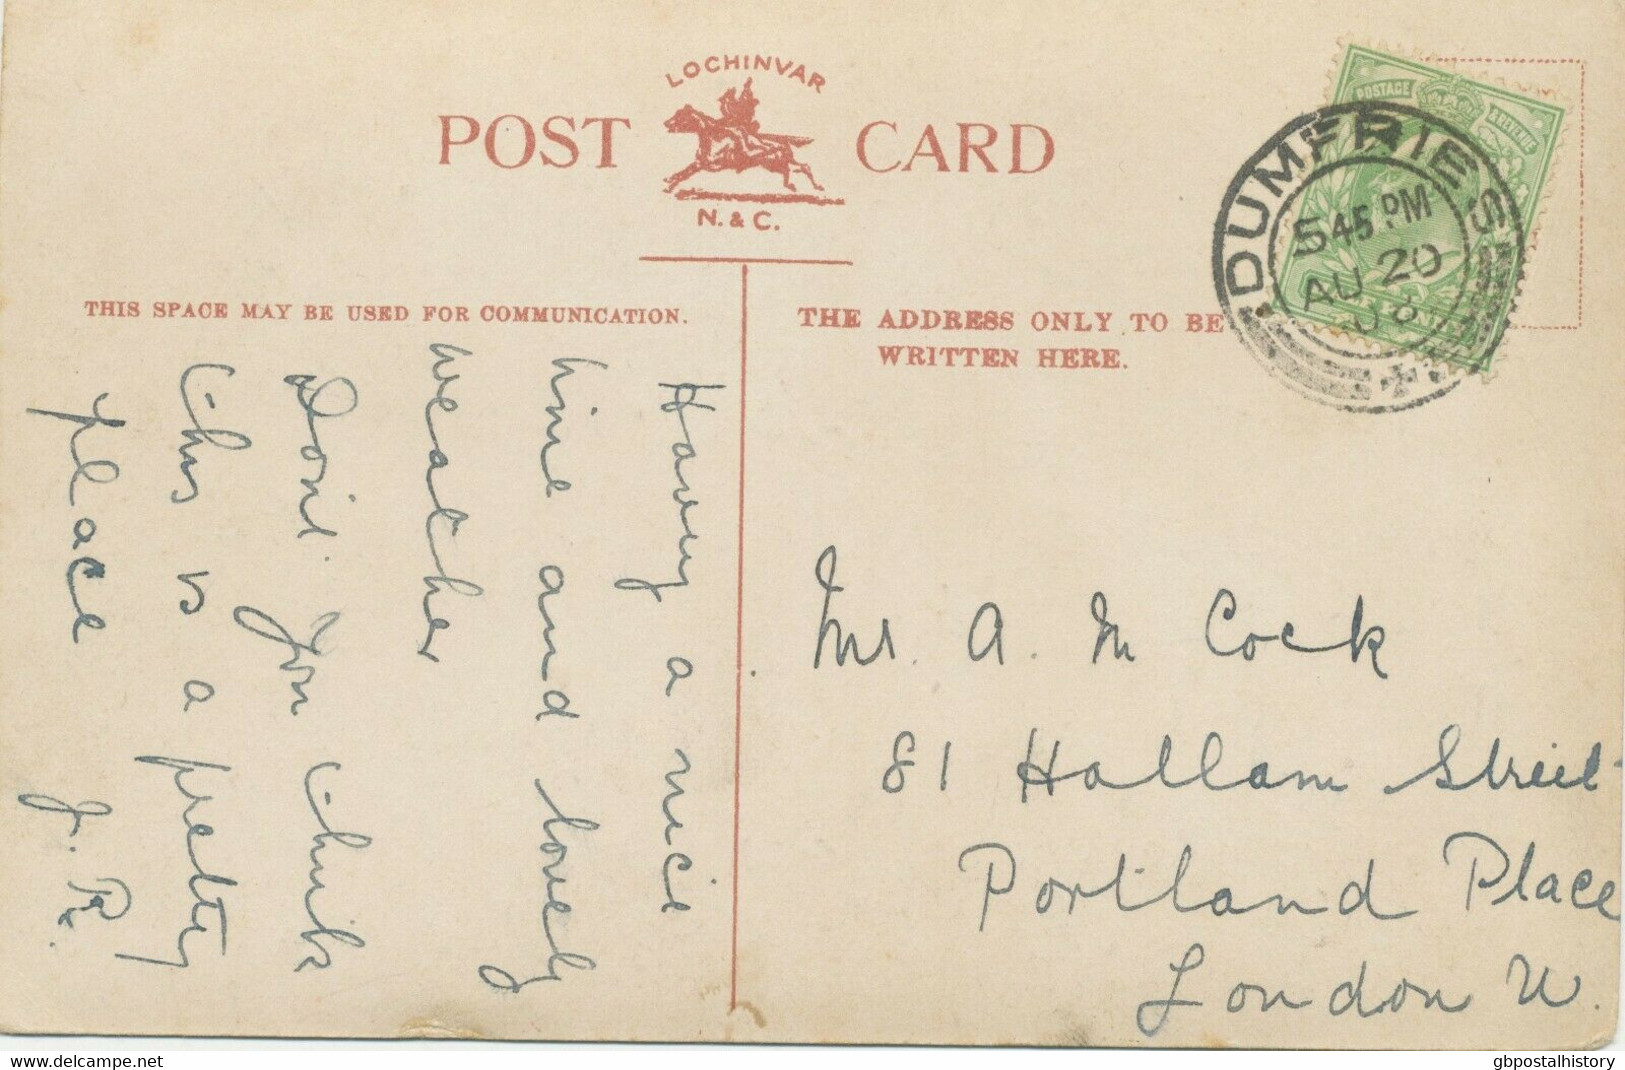 LOCHINVAR
POST CARD
N. & C.
THIS SPACE MAY BE USED FOR COMMUNICATION.
THE ADDRESS ONLY TO BE
WRITTEN HERE.
POSTAGE & REVENUE
DUMFRIES
545 PM
AU 20
08
Having a nice
time and lovely
weather
Don't you think
this is a pretty
place
J. R.
Mr. A. M Cock
81 Hallam Street
Portland Place
London W.
Thumbnail - The-Philately.com
gbpostalhistory